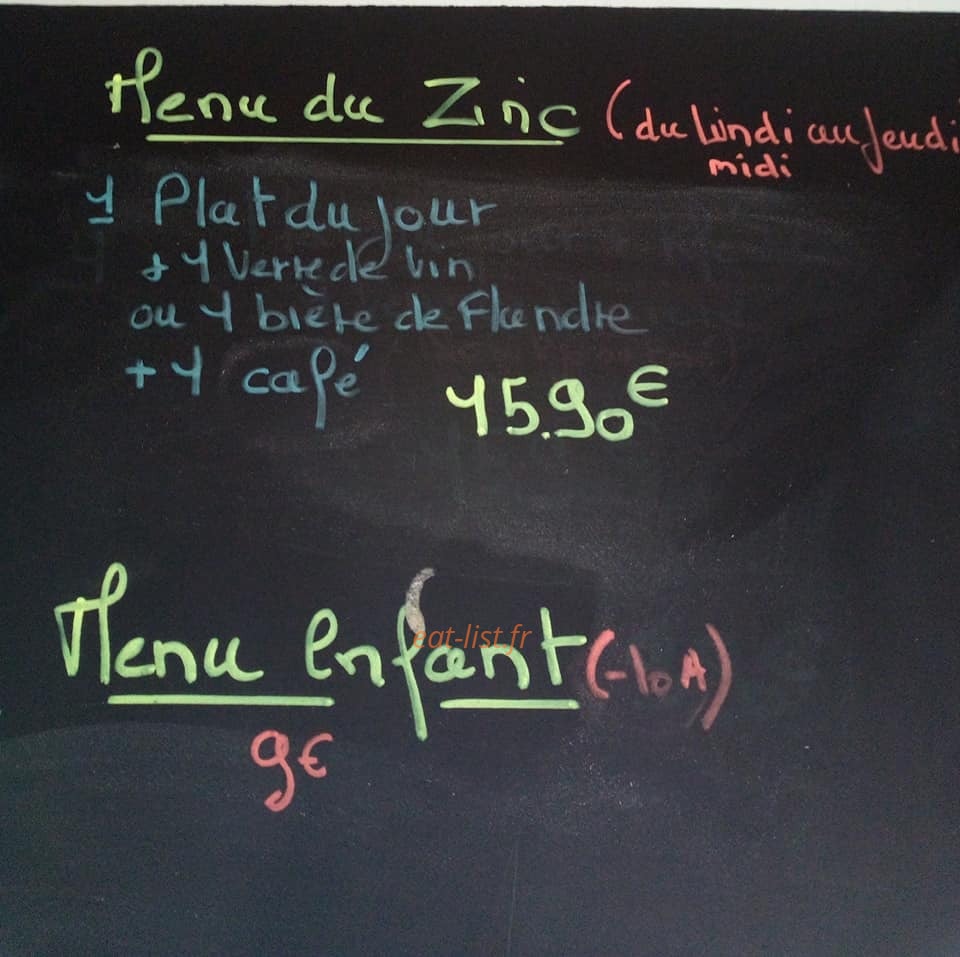 Menu du Zinc (du lundi au Jeudi
midi
1 Plat du jour
+ 1 Verre de Vin
ou 1 bière de Flandre
+ 1 café
15.90€
Menu enfant (-10A)
eat-list.fr
9€